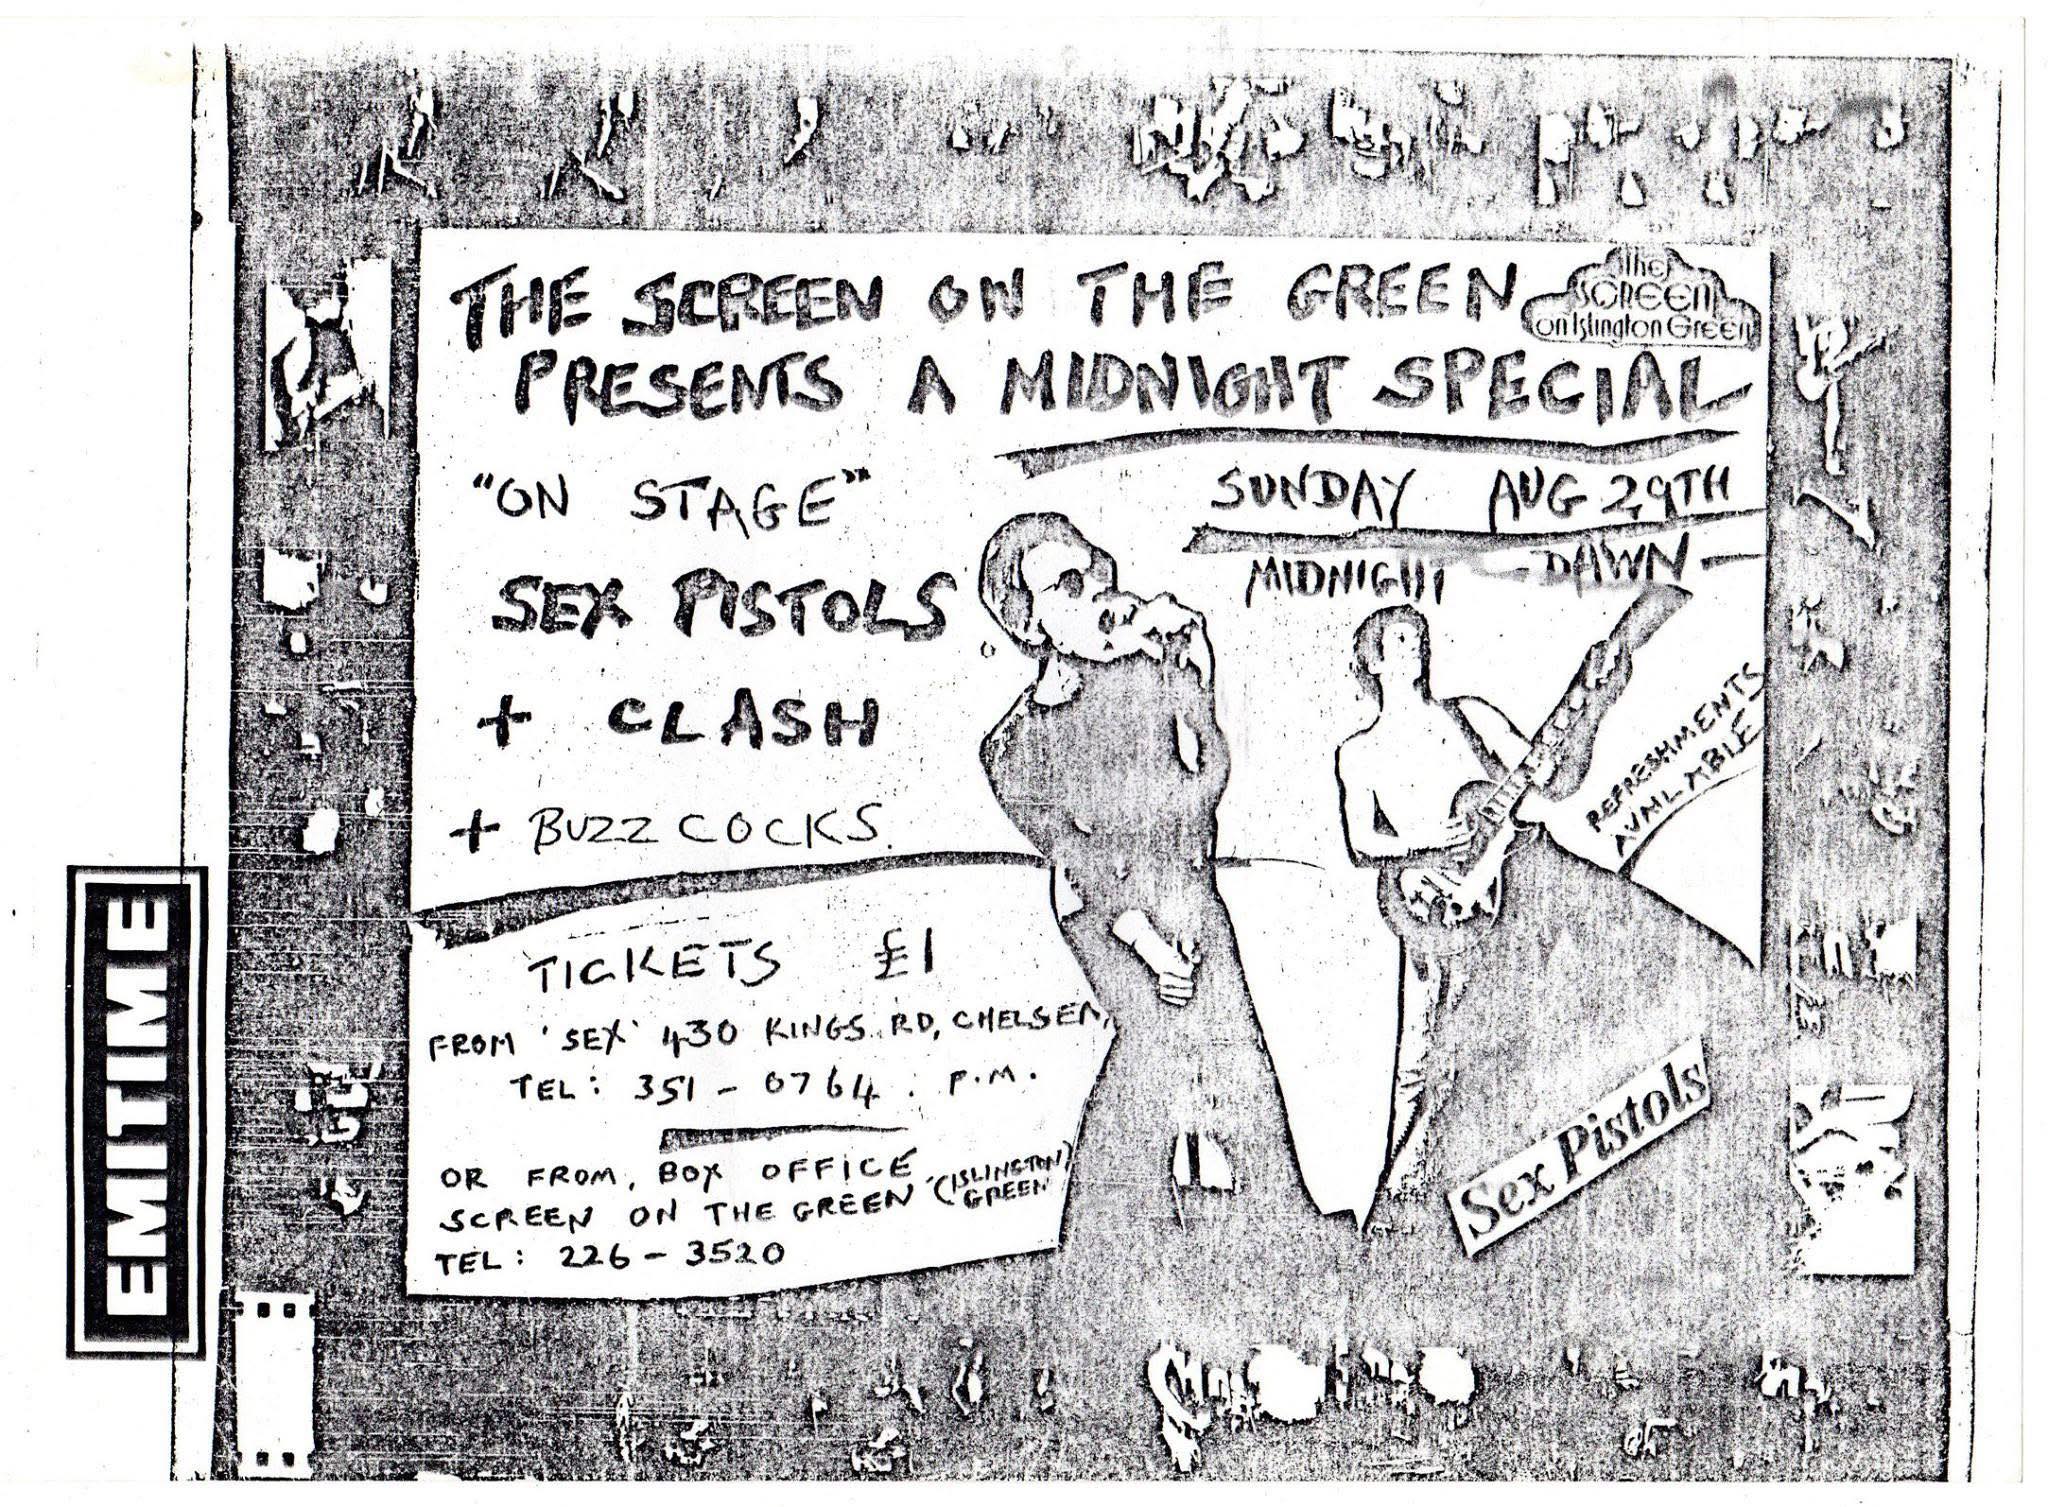 THE SCREEN ON THE GREEN
The
SCREEN
on Islington Green
PRESENTS A MIDNIGHT SPECIAL
"ON STAGE"
SUNDAY AUG 29TH
MIDNIGHT - DAWN -
SEX PISTOLS
+ CLASH
+ BUZZCOCKS.
REFRESHMENTS
AVAILABLE
TICKETS £1
FROM 'SEX' 430 KINGS RD, CHELSEA,
TEL: 351-0764. P.M.
OR FROM, BOX OFFICE
SCREEN ON THE GREEN (ISLINGTON
GREEN)
TEL: 226-3520
Sex Pistols
EMITIME